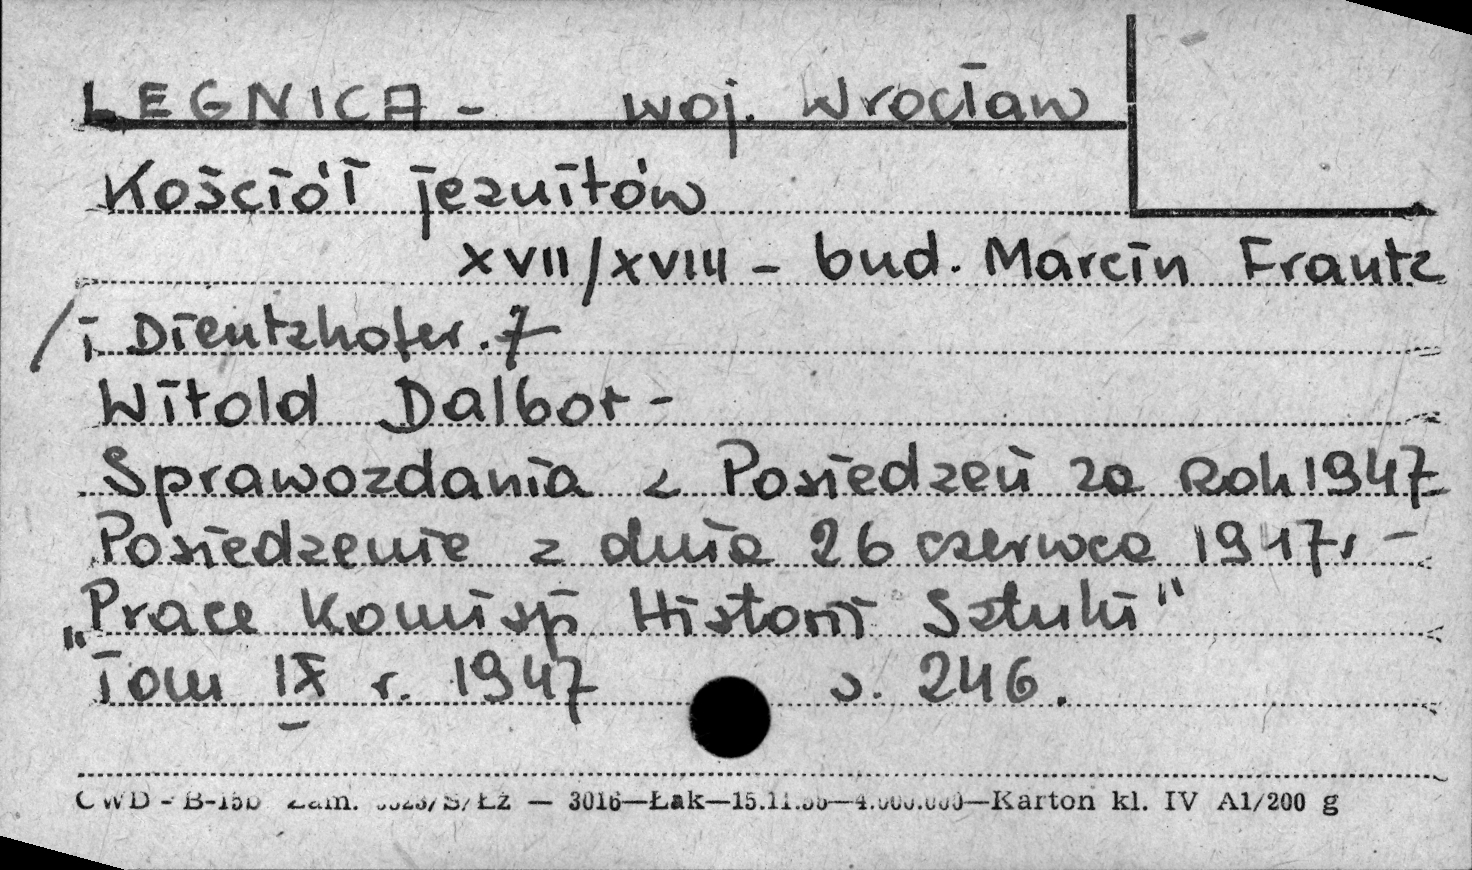 LEGNICA - woj. Wrocław
Kościół jezuitów
XVII/XVIII - bud. Marcin Frantz
/i Dientzhofer.7
Witold Dalbor -
Sprawozdania z Posiedzeń za Rok 1947
Posiedzenie z dnia 26 czerwca 1947r -
„Prace Komisji Historii Sztuki"
Tom IX r. 1947 s. 246.
CWD - B-15b Zam. /S/Łż — 3016—Łak—15.11.56—4.000.000—Karton kl. IV A1/200 g